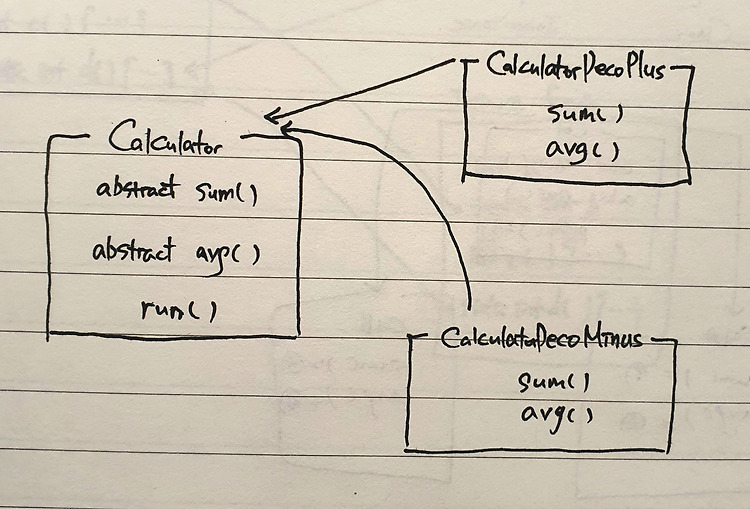 Calculator
abstract sum()
abstract avg()
run()
CalculatorDecoPlus
sum()
avg()
CalculatorDecoMinus
sum()
avg()